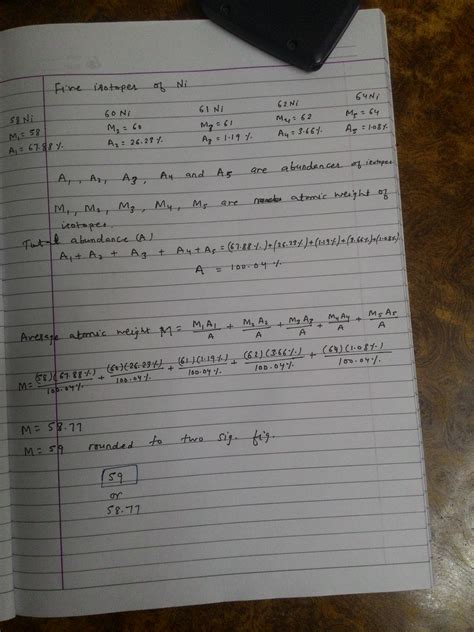 Five isotopes of Ni
58 Ni 60 Ni 61 Ni 62 Ni 64 Ni
M₁ = 58 M₂ = 60 M₃ = 61 M₄ = 62 M₅ = 64
A₁ = 67.88 % A₂ = 26.23 % A₃ = 1.19 % A₄ = 3.66 % A₅ = 1.08 %
A₁, A₂, A₃, A₄ and A₅ are abundances of isotopes
M₁, M₂, M₃, M₄, M₅ are atomic weight of
isotopes.
Total abundance (A)
A₁ + A₂ + A₃ + A₄ + A₅ = (67.88 %) + (26.23 %) + (1.19 %) + (3.66 %) + (1.08 %)
A = 100.04 %
Average atomic weight M = M₁A₁/A + M₂A₂/A + M₃A₃/A + M₄A₄/A + M₅A₅/A
M = (58)(67.88 %)/100.04 % + (60)(26.23 %)/100.04 % + (61)(1.19 %)/100.04 % + (62)(3.66 %)/100.04 % + (64)(1.08 %)/100.04 %
M = 58.77
M = 59 rounded to two sig. fig.
59
or
58.77